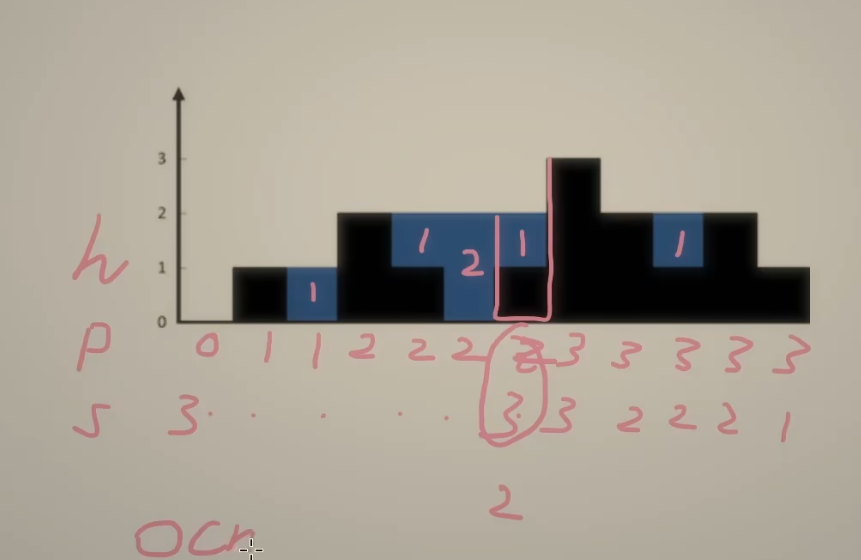 3
2
1 1 1
2
h 1
1
0
P 0 1 1 2 2 2 2 3 3 3 3 3
S 3 . . . . . 3 3 2 2 2 1
2
O(n